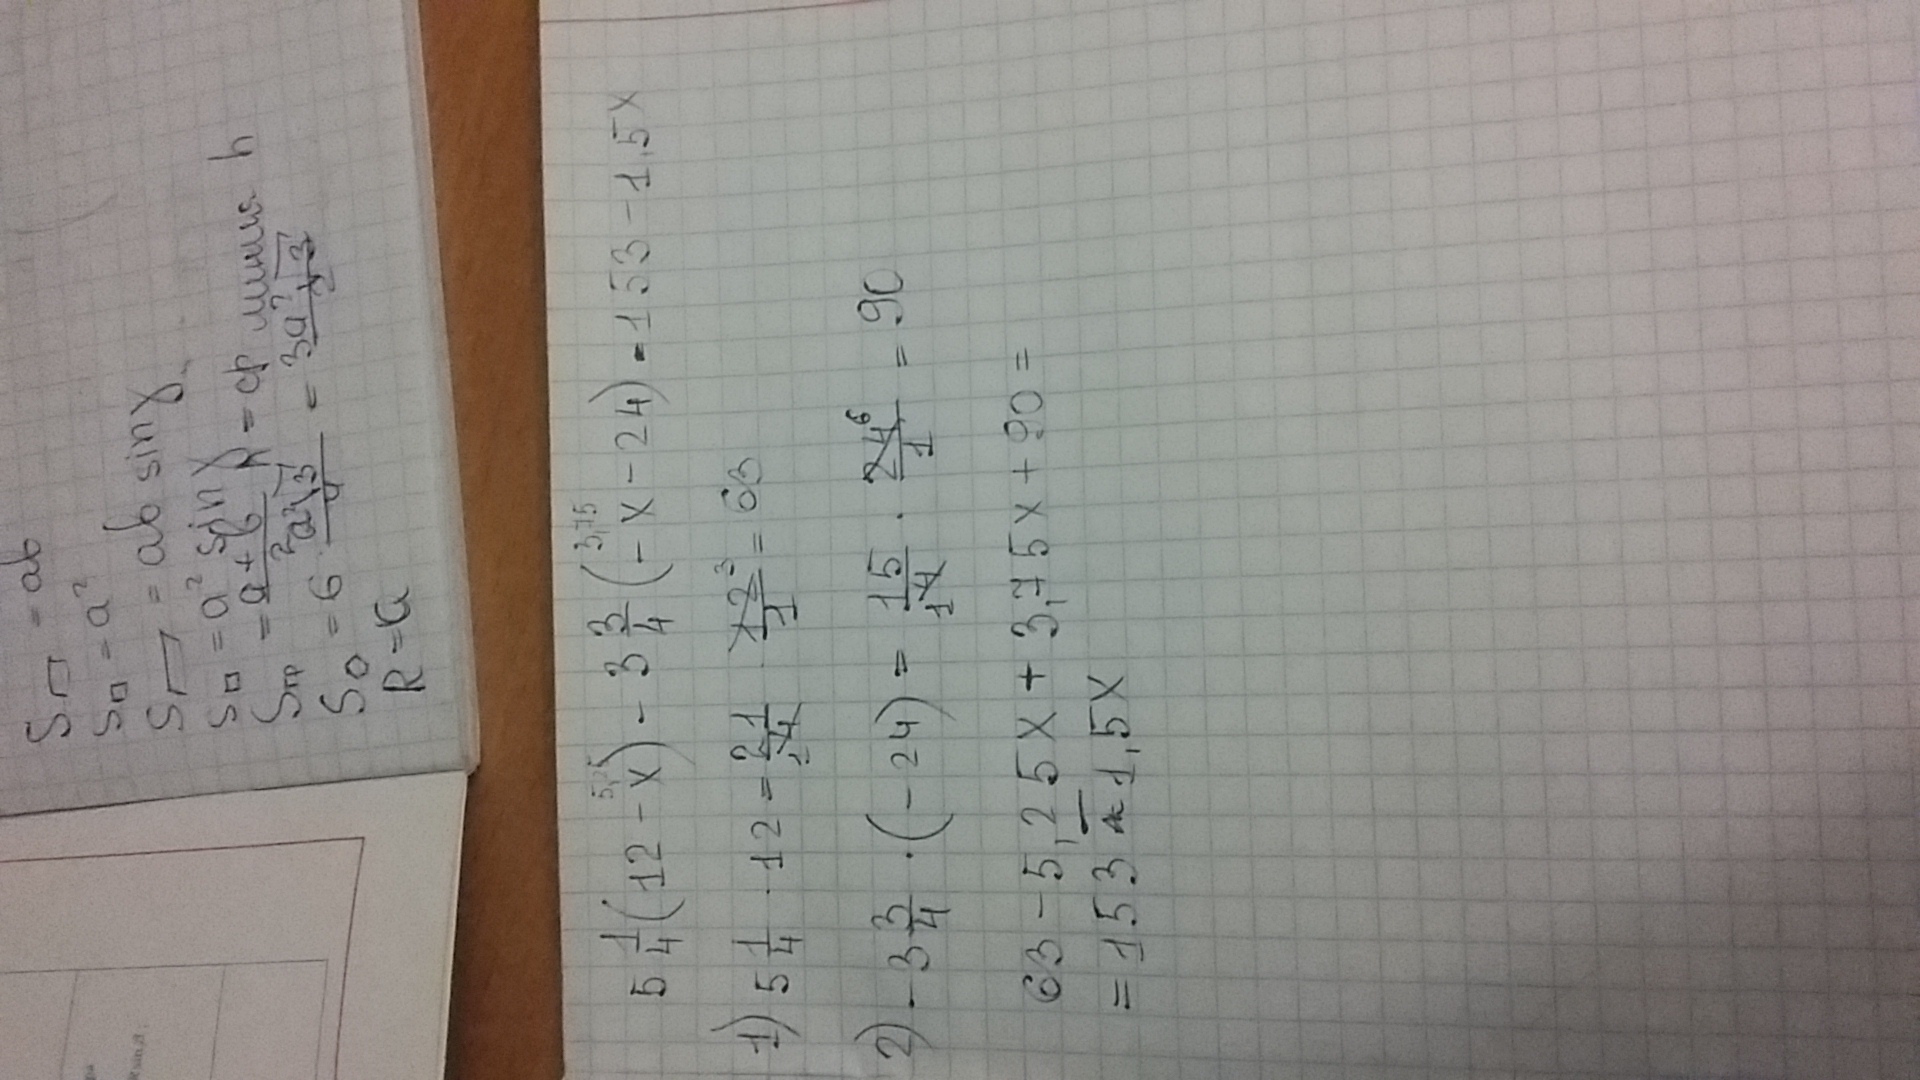 S▭ = ab
S□ = a²
S▱ = ab sin γ
S◇ = a² sin γ
= a+b/2 h = ср линия · h
S⬡ = 6 · a²√3/4 = 3a²√3/2
R=a
5 1/4 (12 - x) - 3 3/4 (-x - 24) = 153 - 1,5x
5,25 3,75
1) 5 1/4 · 12 = 21/4 · 12/1 = 63
2) -3 3/4 · (-24) = 15/4 · 24/1 = 90
63 - 5,25x + 3,75x + 90 =
= 153 - 1,5x